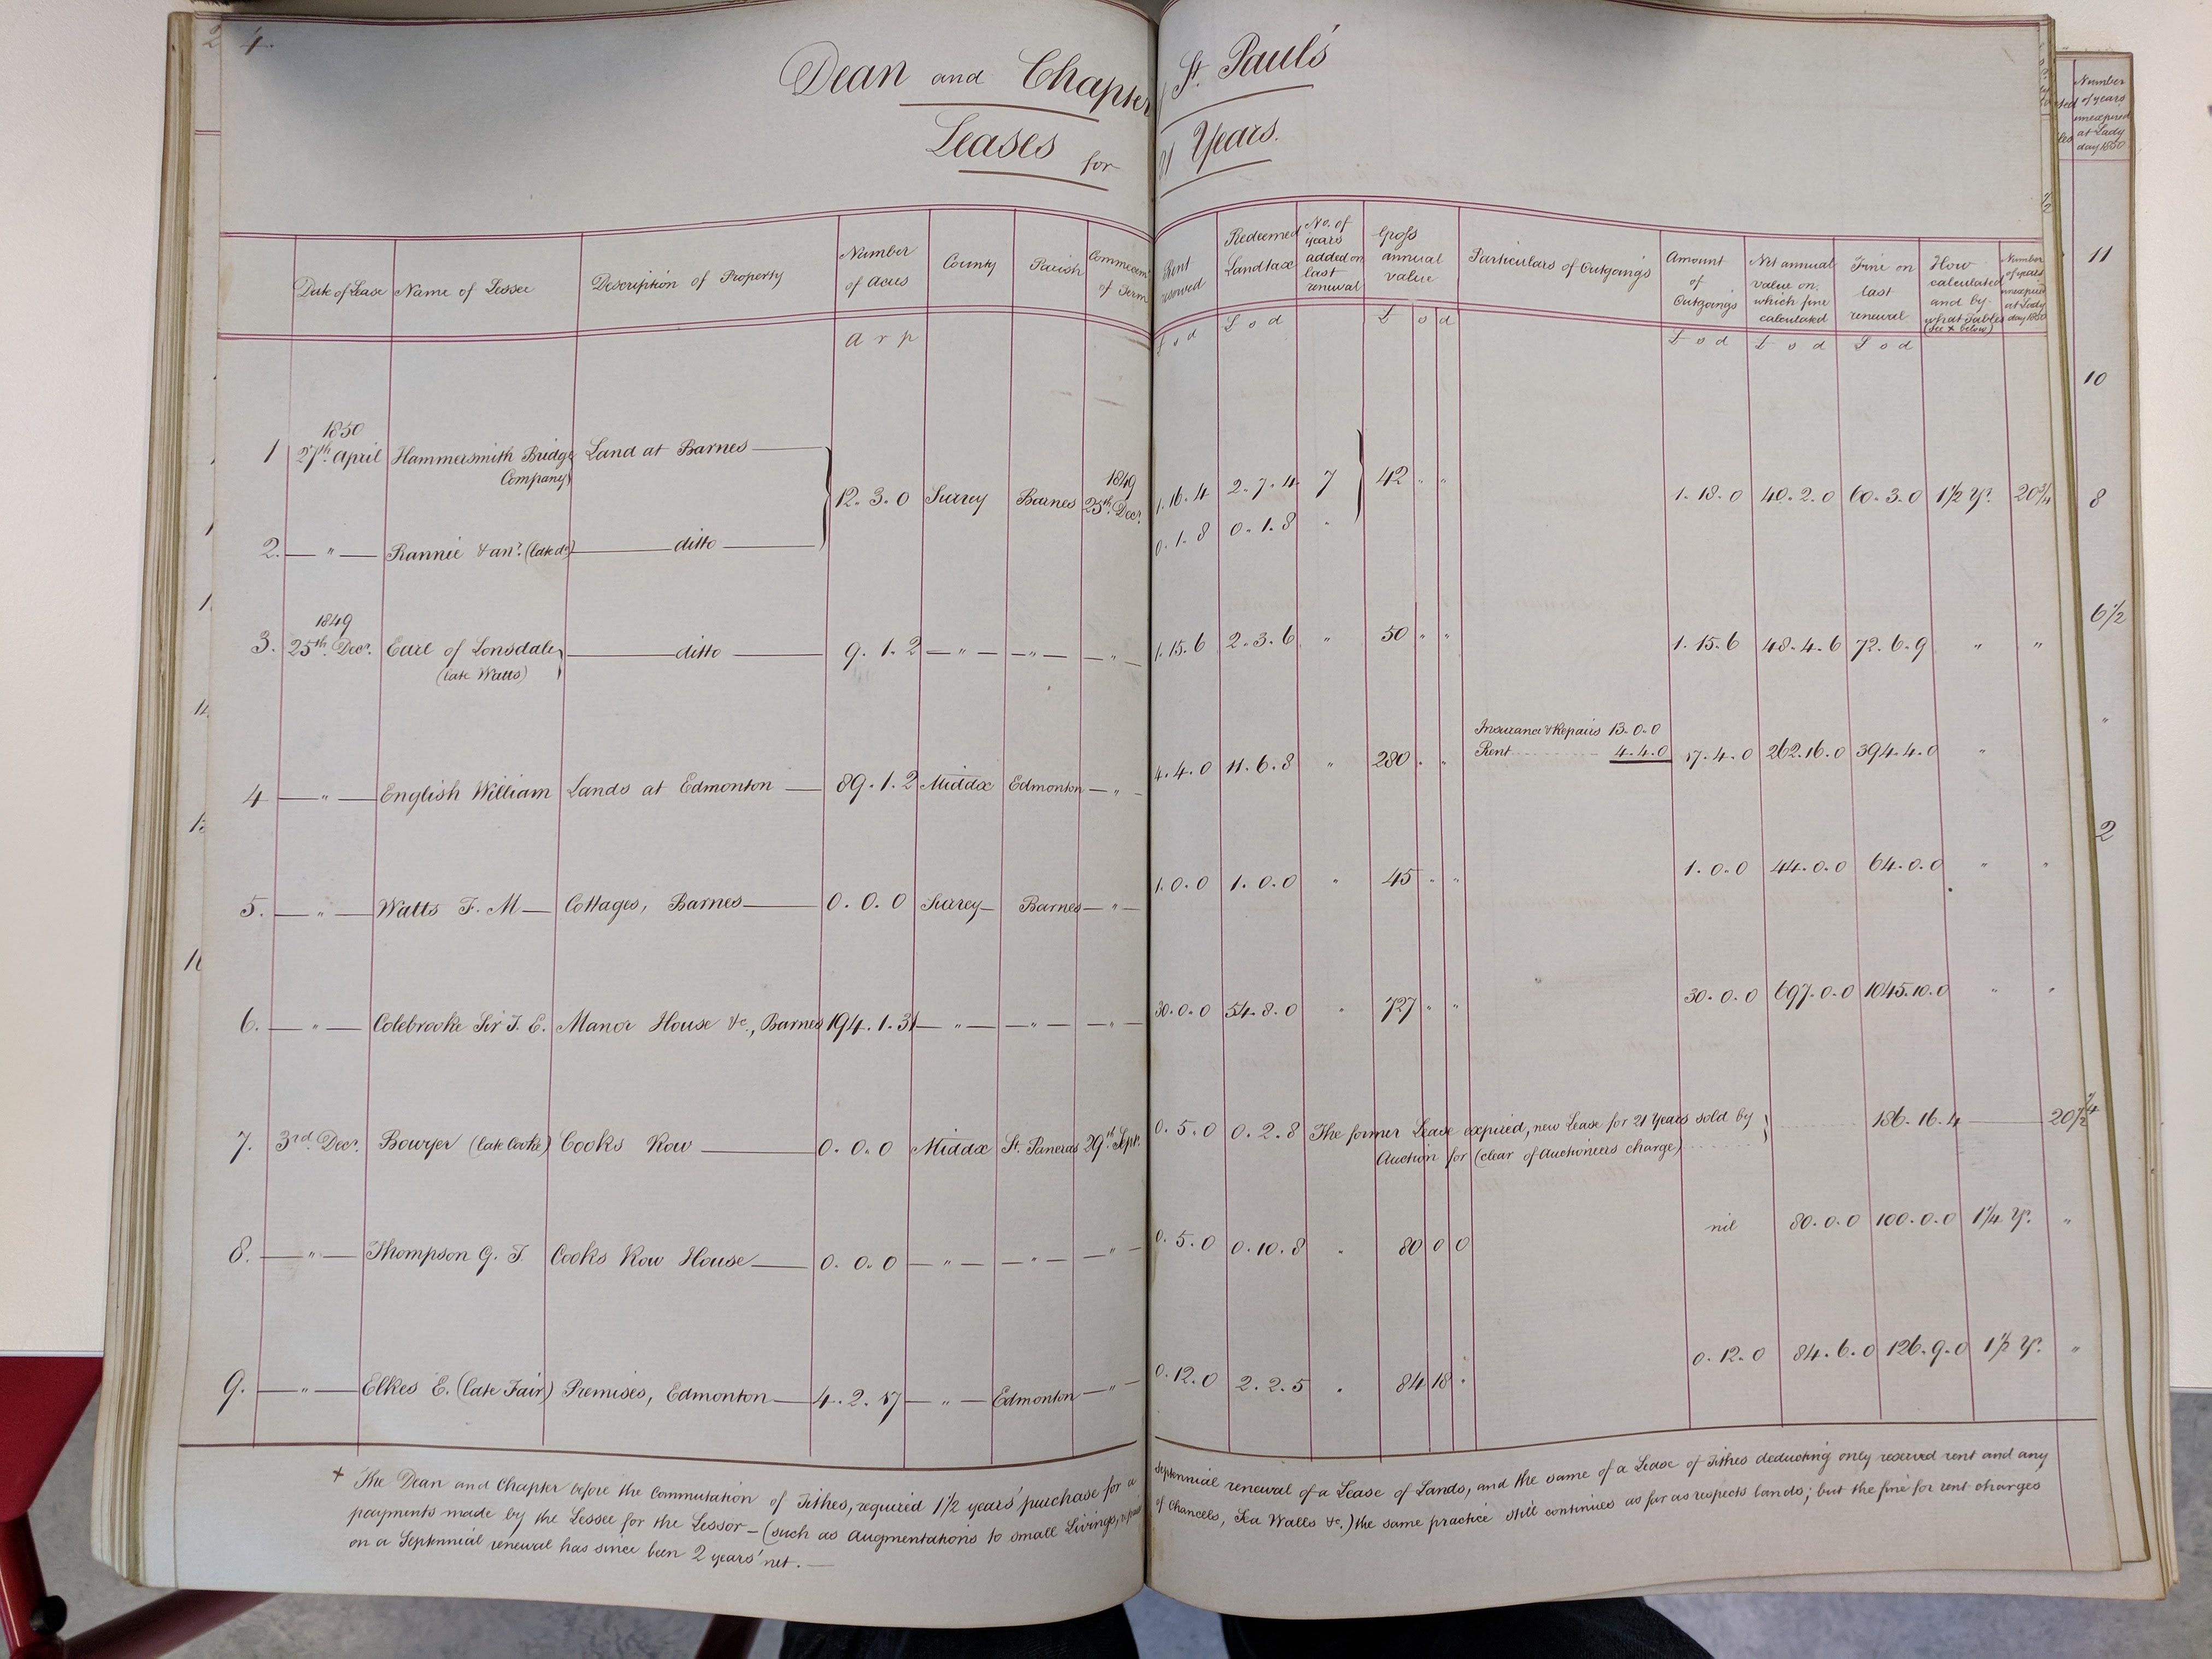 4.
Dean and Chapter St. Paul's
Leases for 21 Years.
Date of Lease | Name of Lessee | Description of Property | Number of acres | County | Parish | Commencemt of Term | Rent reserved | Redeemed Landtax | No. of years added on last renewal | Gross annual value | Particulars of Outgoings | Amount of Outgoings | Net annual value on which fine calculated | Fine on last renewal | How calculated and by what Tables (see + below) | Number of years unexpired at Lady day 1850
a r p | £ s d | £ s d | £ s d | £ s d | £ s d | £ s d
1 | 1850 27th. April | Hammersmith Bridge Company | Land at Barnes | 12. 3. 0 | Surrey | Barnes | 1849 25th. Decr. | 1. 16. 4 | 2. 7. 4 | 7 | 42 " " | 1. 18. 0 | 40. 2. 0 | 60. 3. 0 | 1½ Yr. | 20¾
2. | " | Rannie & anr. (late do) | ditto | 0. 1. 8 | 0. 1. 8 | "
3. | 1849 25th. Decr. | Earl of Lonsdale (late Watts) | ditto | 9. 1. 2 | " | " | " | 1. 15. 6 | 2. 3. 6 | " | 50 " " | 1. 15. 6 | 48. 4. 6 | 72. 6. 9 | " | "
4 | " | English William | Lands at Edmonton | 89. 1. 2 | Middx | Edmonton | " | 4. 4. 0 | 11. 6. 8 | " | 280 " " | Insurance & Repairs 13. 0. 0 Rent 4. 4. 0 | 17. 4. 0 | 262. 16. 0 | 394. 4. 0 | "
5. | " | Watts F. M | Cottages, Barnes | 0. 0. 0 | Surrey | Barnes | " | 1. 0. 0 | 1. 0. 0 | " | 45 " " | 1. 0. 0 | 44. 0. 0 | 64. 0. 0 | " | "
6. | " | Colebrooke Sir T. E. | Manor House &c., Barnes | 194. 1. 31 | " | " | " | 30. 0. 0 | 54. 8. 0 | " | 727 " " | 30. 0. 0 | 697. 0. 0 | 1045. 10. 0 | " | "
7. | 3rd. Decr. | Bowyer (late Cooke) | Cooks Row | 0. 0. 0 | Middx | St. Pancras | 29th. Sept. | 0. 5. 0 | 0. 2. 8 | The former Lease expired, new Lease for 21 Years sold by Auction for (clear of Auctioneers charge) | 186. 16. 4 | 20½
8. | " | Thompson G. T. | Cooks Row House | 0. 0. 0 | " | " | " | 0. 5. 0 | 0. 10. 8 | " | 80 0 0 | nil | 80. 0. 0 | 100. 0. 0 | 1¼ Yr. | "
9. | " | Elkes E. (late Fair) | Premises, Edmonton | 4. 2. 17 | " | Edmonton | " | 0. 12. 0 | 2. 2. 5 | " | 84 18 " | 0. 12. 0 | 84. 6. 0 | 126. 9. 0 | 1½ Yr. | "
+ The Dean and Chapter before the Commutation of Tithes, required 1½ years' purchase for a Septennial renewal of a Lease of Lands, and the same of a Lease of Tithes deducting only reserved rent and any
payments made by the Lessee for the Lessor - (such as Augmentations to small Livings, repairs of Chancels, Sea Walls &c.) the same practice still continues as far as respects lands; but the fine for rent charges
on a Septennial renewal has since been 2 years' net.
Number of years unexpired at Lady day 1850
11
10
8
6½
"
2